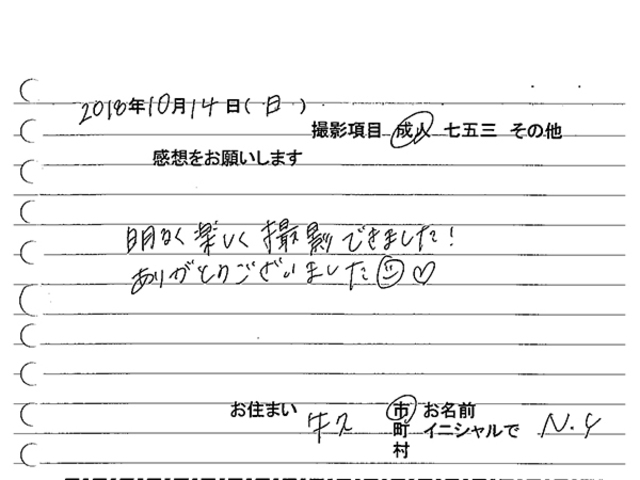 2018年10月14日(日)
撮影項目 成人 七五三 その他
感想をお願いします
明るく楽しく撮影できました!
ありがとうございました☺♡
お住まい 牛久 市 お名前
町 イニシャルで N.Y
村